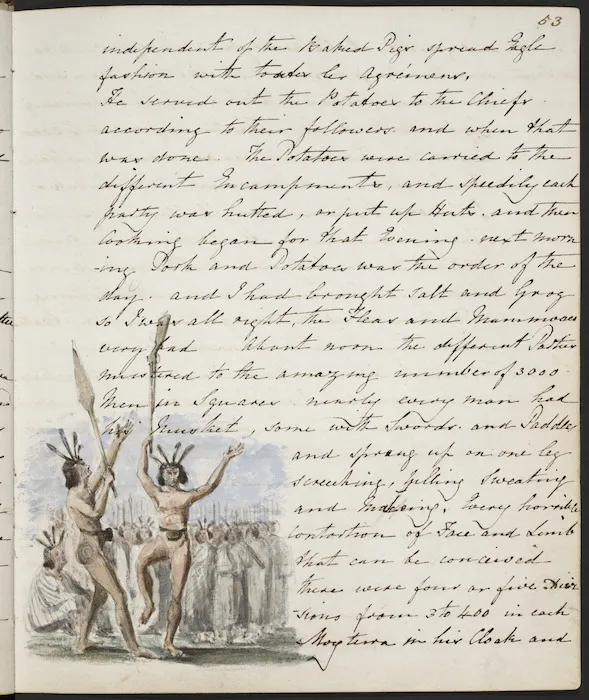 53
independent of the Baked Pigs spread Eagle
fashion with toutes les Agrémens.
He served out the Potatoes to the Chiefs
according to their followers. and when that
was done. The Potatoes were carried to the
different Encampments, and speedily each
party was hutted, or put up Huts. and then
Cooking began for that Evening. next morn
-ing Pork and Potatoes was the order of the
day. and I had brought salt and Grog
so I was all right, the Fleas and
very bad About noon the different Parties
mustered to the amazing number of 3000
Men in Squares nearly every man had
his Musket, some with Swords. and Paddles
and sprung up on one leg
screeching, yelling Sweating
and every horrible
contortion of Face and Limb
that can be conceived
there were four or five Divi
-sions from 3 to 400 in each
in his Cloak and